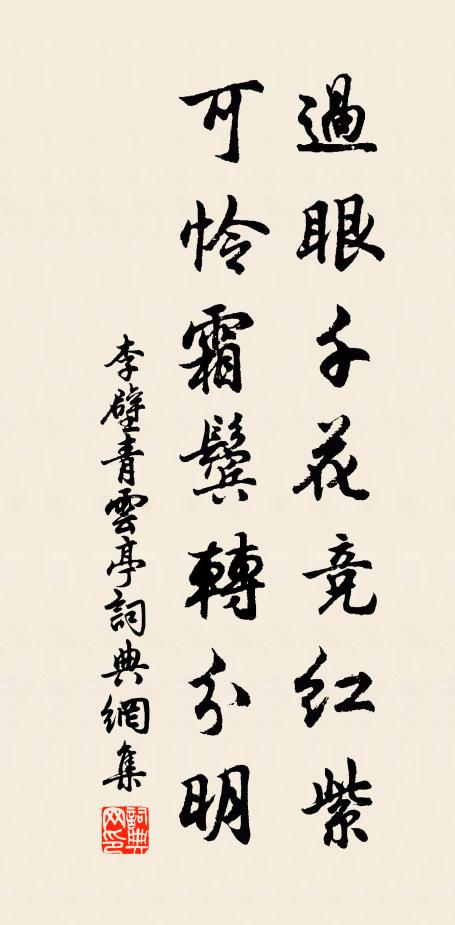 過眼千花竞紅紫
可怜霜鬓轉分明
李壁青雲亭詞典網集
詞典网印